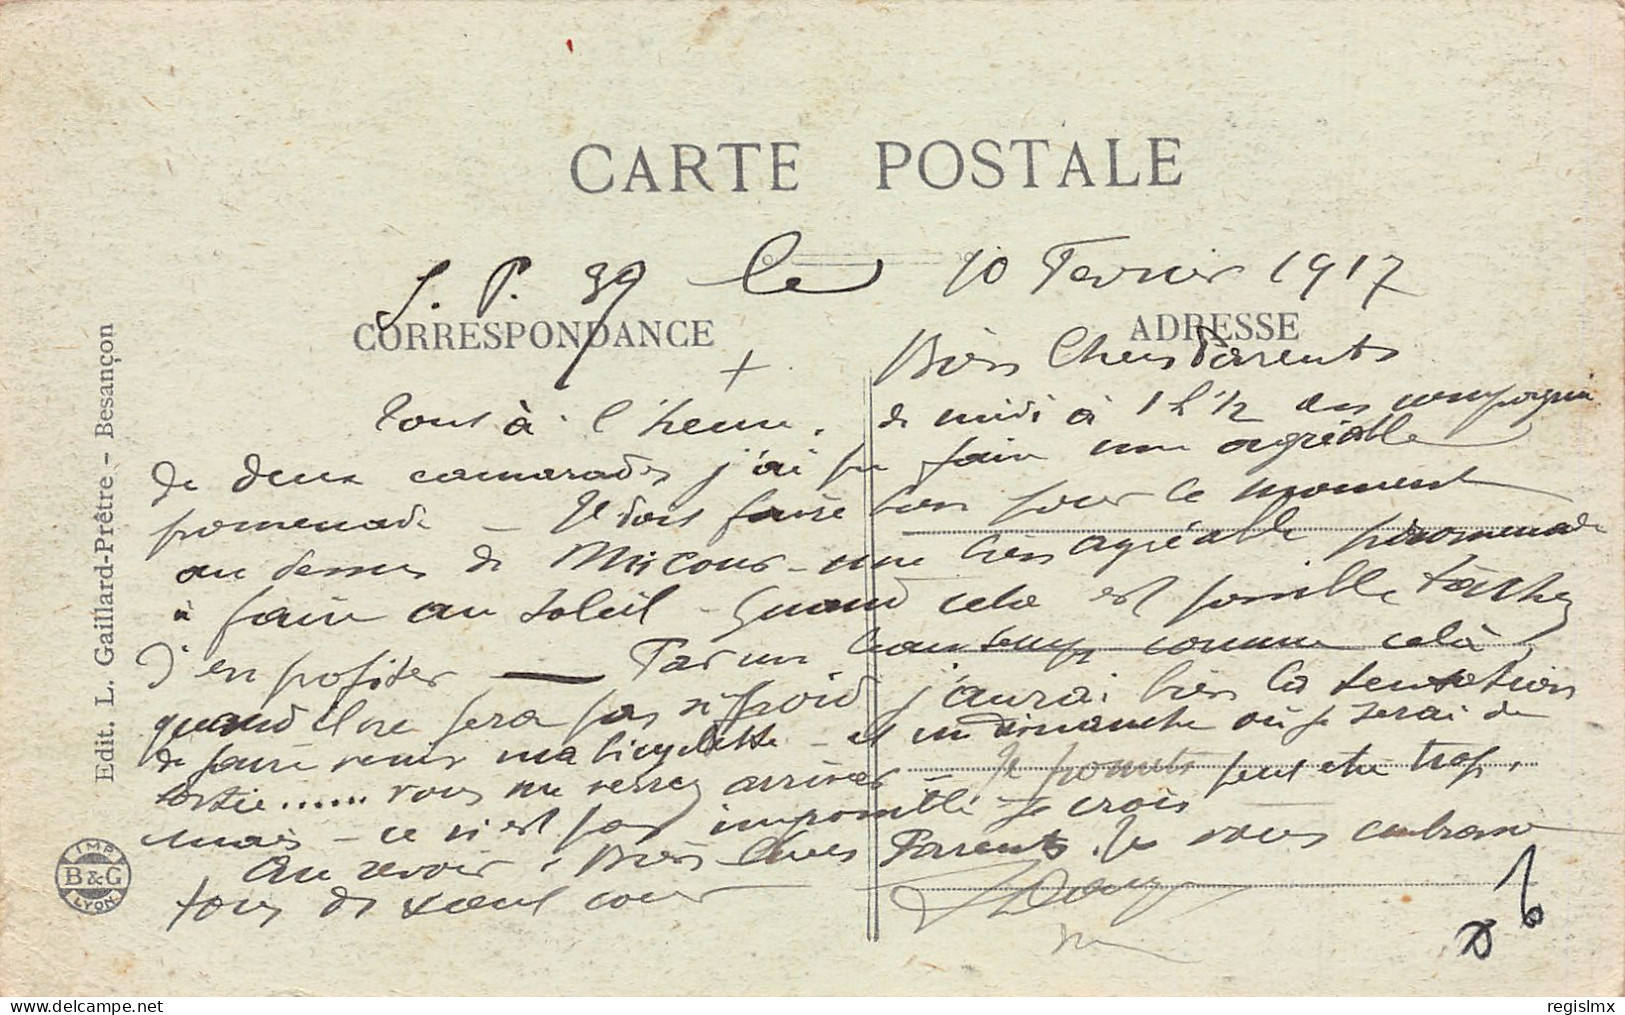 CARTE POSTALE
S. P. 39 le 10 Fevrier 1917
CORRESPONDANCE
ADRESSE
Edit. L. Gaillard-Prêtre - Besançon
Bien Chers Parents
Tout à l'heure, de midi à 1 h 1/2 en compagnie
de deux camarades j'ai pu faire une agréable
promenade - Je dois faire bon pour le moment
au dessus de Micour - une bien agréable promenade
à faire au soleil - Quand cela est possible tâchez
d'en profiter — Par un beau temps comme celà
quand il ne fera pas si froid j'aurai bien la tentation
de faire venir ma bicyclette - et un dimanche où je serai de
sortie...... vous me verrez arriver - Je promets peut etre trop,
mais - ce n'est pas impossible je crois -
Au revoir, Bien Chers Parents. Je vous embrasse
tous de tout cœur
IMP
B&G
LYON
regislmx